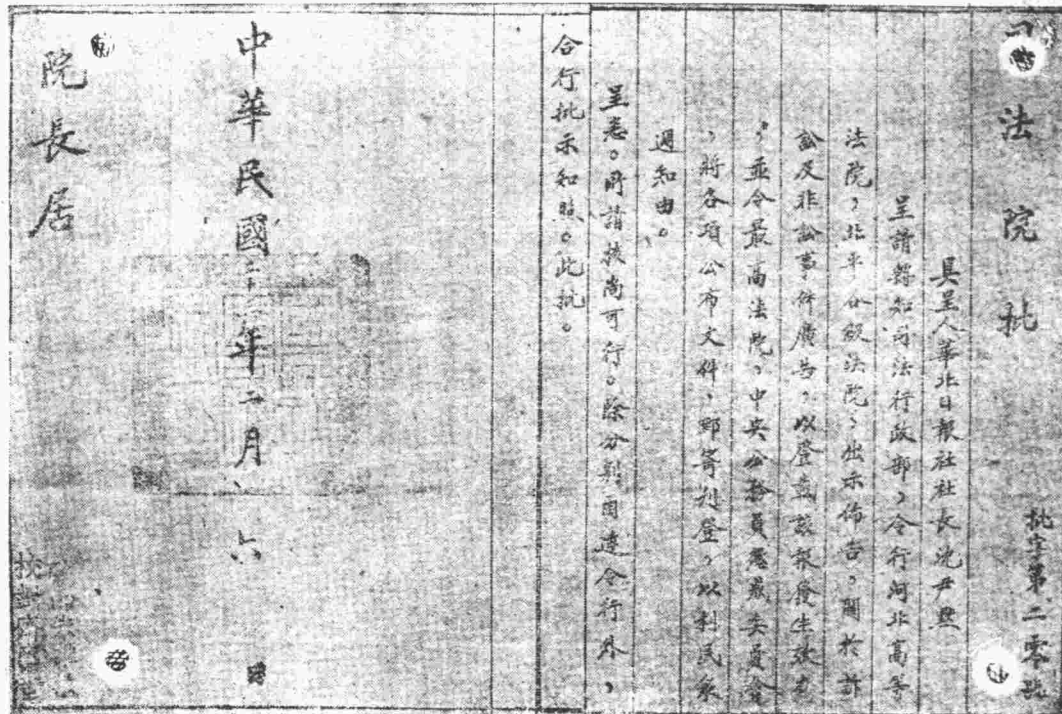 司法院批
批字第二零號
具呈人華北日報社社長沈尹默
呈請轉知司法行政部,令行河北高等
法院,北平分級法院,出示佈告,關於訴
訟及非訟事件廣告,以登載該報發生效力
,並令最高法院,中央公務員懲戒委員會
,將各項公布文件,郵寄刊登,以利民眾
週知由。
呈悉。所請核尚可行。除分別函達令行外,
合行批示知照。此批。
中華民國二十二年二月 六
院長居